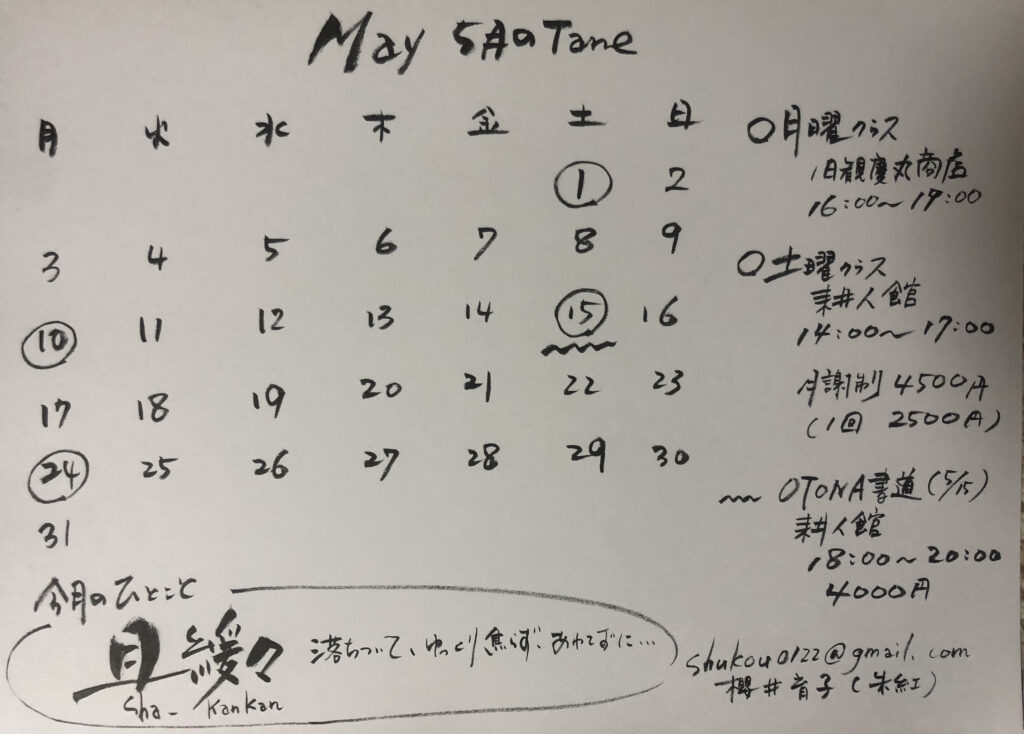 May 5月のTane
月 火 水 木 金 土 日
1 2
3 4 5 6 7 8 9
10 11 12 13 14 15 16
17 18 19 20 21 22 23
24 25 26 27 28 29 30
31
○月曜クラス
旧観慶丸商店
16:00〜19:00
○土曜クラス
耕人館
14:00〜17:00
月謝制 4500円
(1回 2500円)
〜〜 OTONA書道(5/15)
耕人館
18:00〜20:00
4000円
今月のひとこと
且緩々
Sha- KanKan
落ちついて、ゆっくり焦らず、あわてずに…
shukou0122@gmail.com
櫻井育子(朱紅)